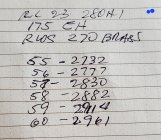 RL 23 280AI
175 CH
RWS 270 BRASS
55 - 2732
56 - 2777
58 - 2830
58 - 2882
59 - 2914
60 - 2961